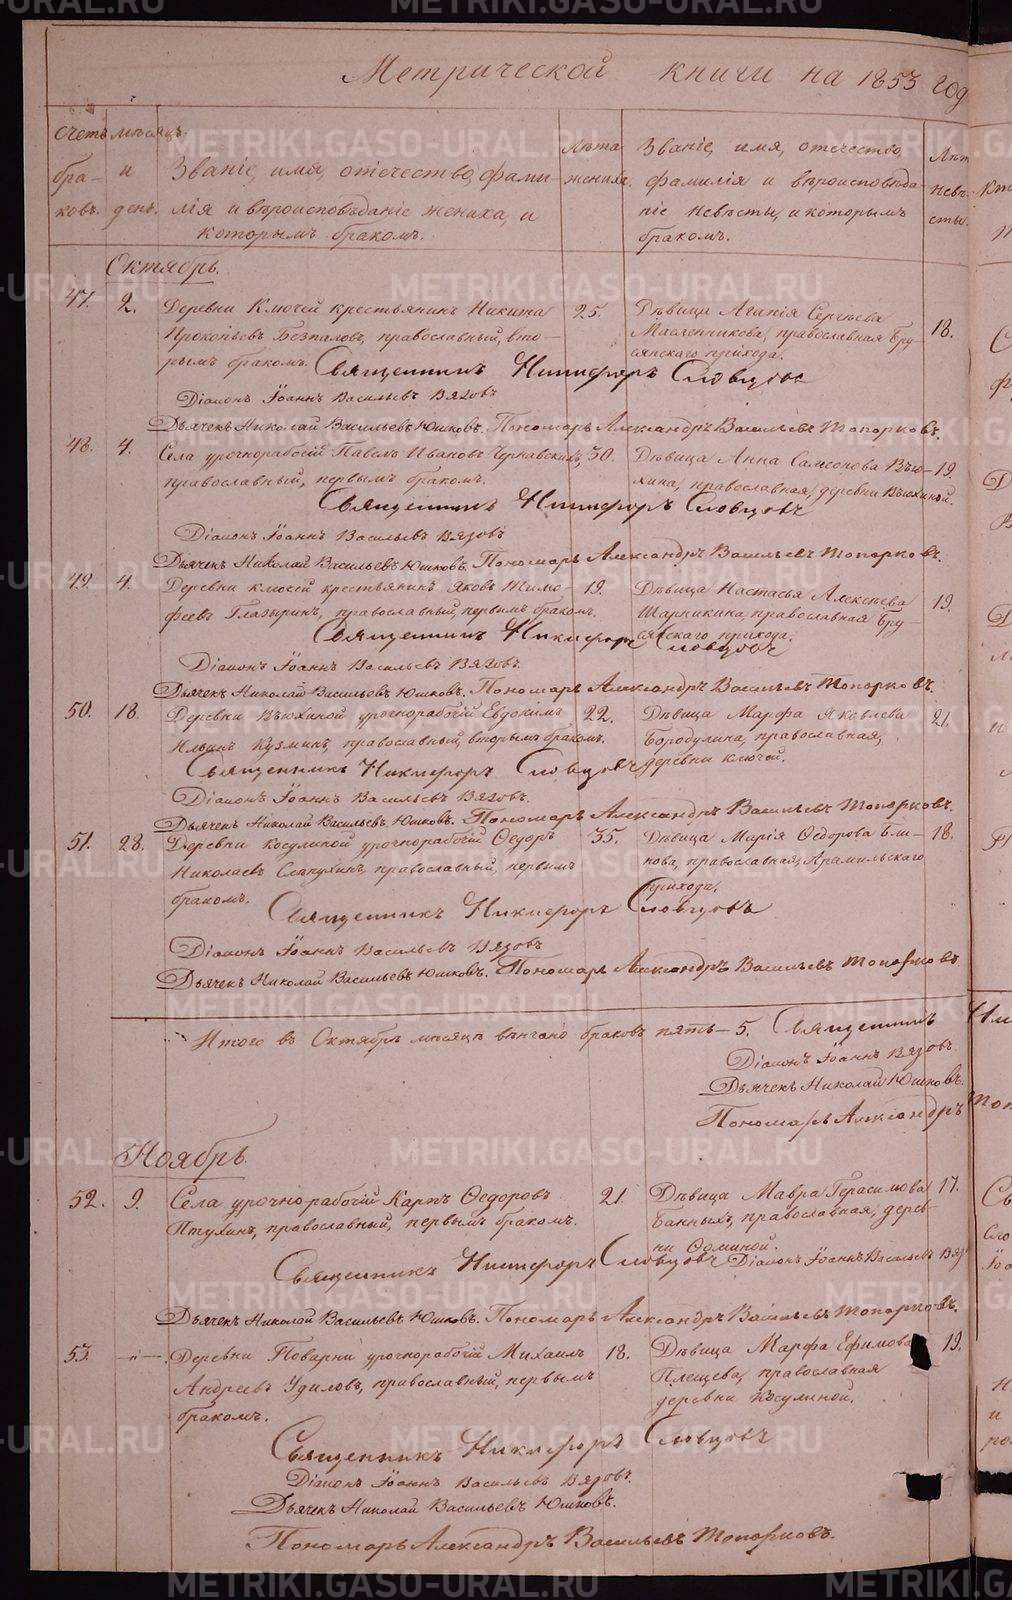 Метрической книги на 1853 год
Счетъ браковъ.
мѣсяцъ и день.
Званіе, имя, отечество, фами-
лія и вѣроисповѣданіе жениха, и
которымъ бракомъ.
Лѣта жениха.
Званіе, имя, отечество,
фамилія и вѣроисповѣда-
ніе невѣсты, и которымъ
бракомъ.
Лѣт невѣ-
сты.
Октябрь.
47. 2. Деревни Ключей крестьянинъ Никита 25. Дѣвица Агапія Сергѣева 18.
Прокопьевъ Безпаловъ, православный, вто- Масленникова, православная Бру-
рымъ бракомъ. сянскаго прихода.
Священникъ Никифоръ Словцовъ
Діаконъ Іоаннъ Васильевъ Вязовъ
Дьячекъ Николай Васильевъ Юшковъ. Пономарь Александръ Васильевъ Топорковъ.
48. 4. Села урочнорабочій Павелъ Ивановъ Чернавскихъ, 30. Дѣвица Анна Самсонова Вью- 19.
православный, первымъ бракомъ. хина, православная, деревни Вьюхиной.
Священникъ Никифоръ Словцовъ
Діаконъ Іоаннъ Васильевъ Вязовъ
Дьячекъ Николай Васильевъ Юшковъ. Пономарь Александръ Васильевъ Топорковъ.
49. 4. Деревни ключей крестьянинъ Яковъ Тимо- 19. Дѣвица Настасья Алексѣева 19.
феевъ Глазыринъ, православный, первымъ бракомъ. Шарникина, православная Бру-
сянскаго прихода.
Священникъ Никифоръ Словцовъ
Діаконъ Іоаннъ Васильевъ Вязовъ.
Дьячекъ Николай Васильевъ Юшковъ. Пономарь Александръ Васильевъ Топорковъ.
50. 18. Деревни Вьюхиной урочнорабочій Евдокимъ 22. Дѣвица Марфа Яковлева 21.
Ильинъ Кузминъ, православный, вторымъ бракомъ. Бородулина, православная,
деревни ключей.
Священникъ Никифоръ Словцовъ
Діаконъ Іоаннъ Васильевъ Вязовъ.
Дьячекъ Николай Васильевъ Юшковъ. Пономарь Александръ Васильевъ Топорковъ.
51. 28. Деревни Косулиной урочнорабочій Ѳедоръ 35. Дѣвица Марія Ѳедорова Бли- 18.
Николаевъ православный, первымъ нова, православная, Арамильскаго
бракомъ. прихода.
Священникъ Никифоръ Словцовъ
Діаконъ Іоаннъ Васильевъ Вязовъ
Дьячекъ Николай Васильевъ Юшковъ. Пономарь Александръ Васильевъ Топорковъ.
Итого въ Октябрѣ мѣсяцѣ вѣнчано браковъ пять – 5. Священникъ
Діаконъ Іоаннъ Вязовъ.
Дьячекъ Николай Юшковъ.
Пономарь Александръ
Ноябрь.
52. 9. Села урочнорабочій Карпъ Ѳедоровъ 21. Дѣвица Мавра Герасимова 17.
Птухинъ, православный, первымъ бракомъ. Банныхъ, православная, дерев-
ни
Священникъ Никифоръ Словцовъ Діаконъ Іоаннъ Васильевъ Вяз
Дьячекъ Николай Васильевъ Юшковъ. Пономарь Александръ Васильевъ Топорковъ.
53. –"– Деревни Поварни урочнорабочій Михаилъ 18. Дѣвица Марфа Ефимова 19.
Андреевъ Удиловъ, православный, первымъ Плещева, православная
бракомъ. деревни Косулиной.
Священникъ Никифоръ Словцовъ
Діаконъ Іоаннъ Васильевъ Вязовъ.
Дьячекъ Николай Васильевъ Юшковъ.
Пономарь Александръ Васильевъ Топорковъ.
METRIKI.GASO-URAL.RU